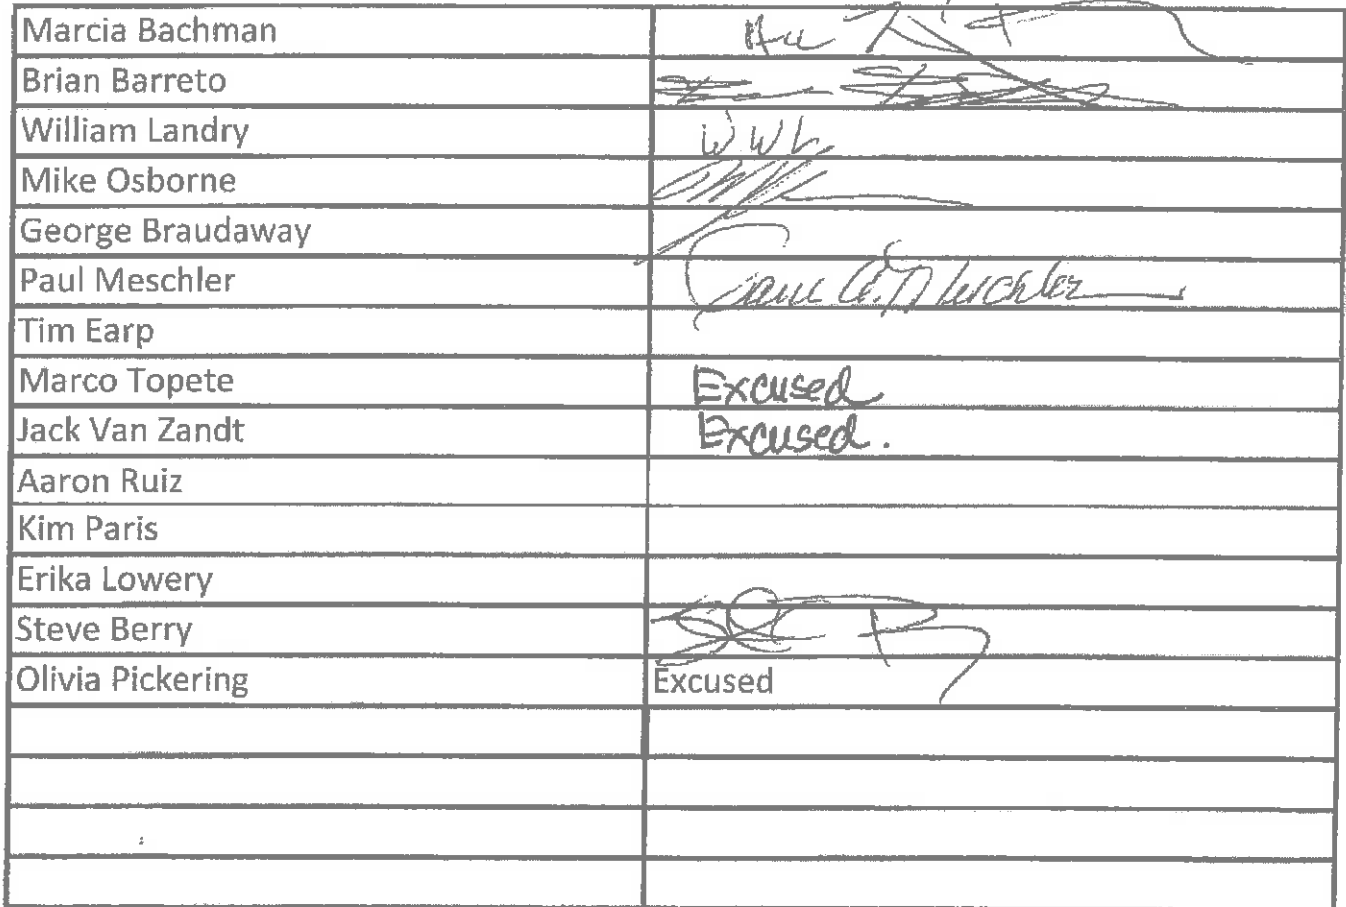 Marcia Bachman
Brian Barreto
William Landry WWL
Mike Osborne
George Braudaway
Paul Meschler Paul A. Meschler
Tim Earp
Marco Topete Excused
Jack Van Zandt Excused.
Aaron Ruiz
Kim Paris
Erika Lowery
Steve Berry
Olivia Pickering Excused